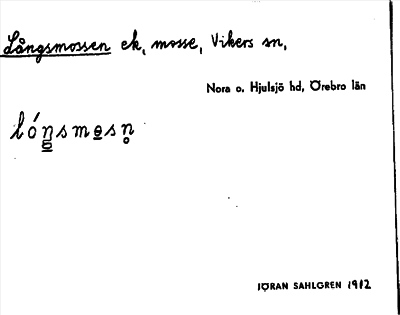 Långsmossen ek, mosse, Vikers sn,
Nora o. Hjulsjö hd, Örebro län
JÖRAN SAHLGREN 1912